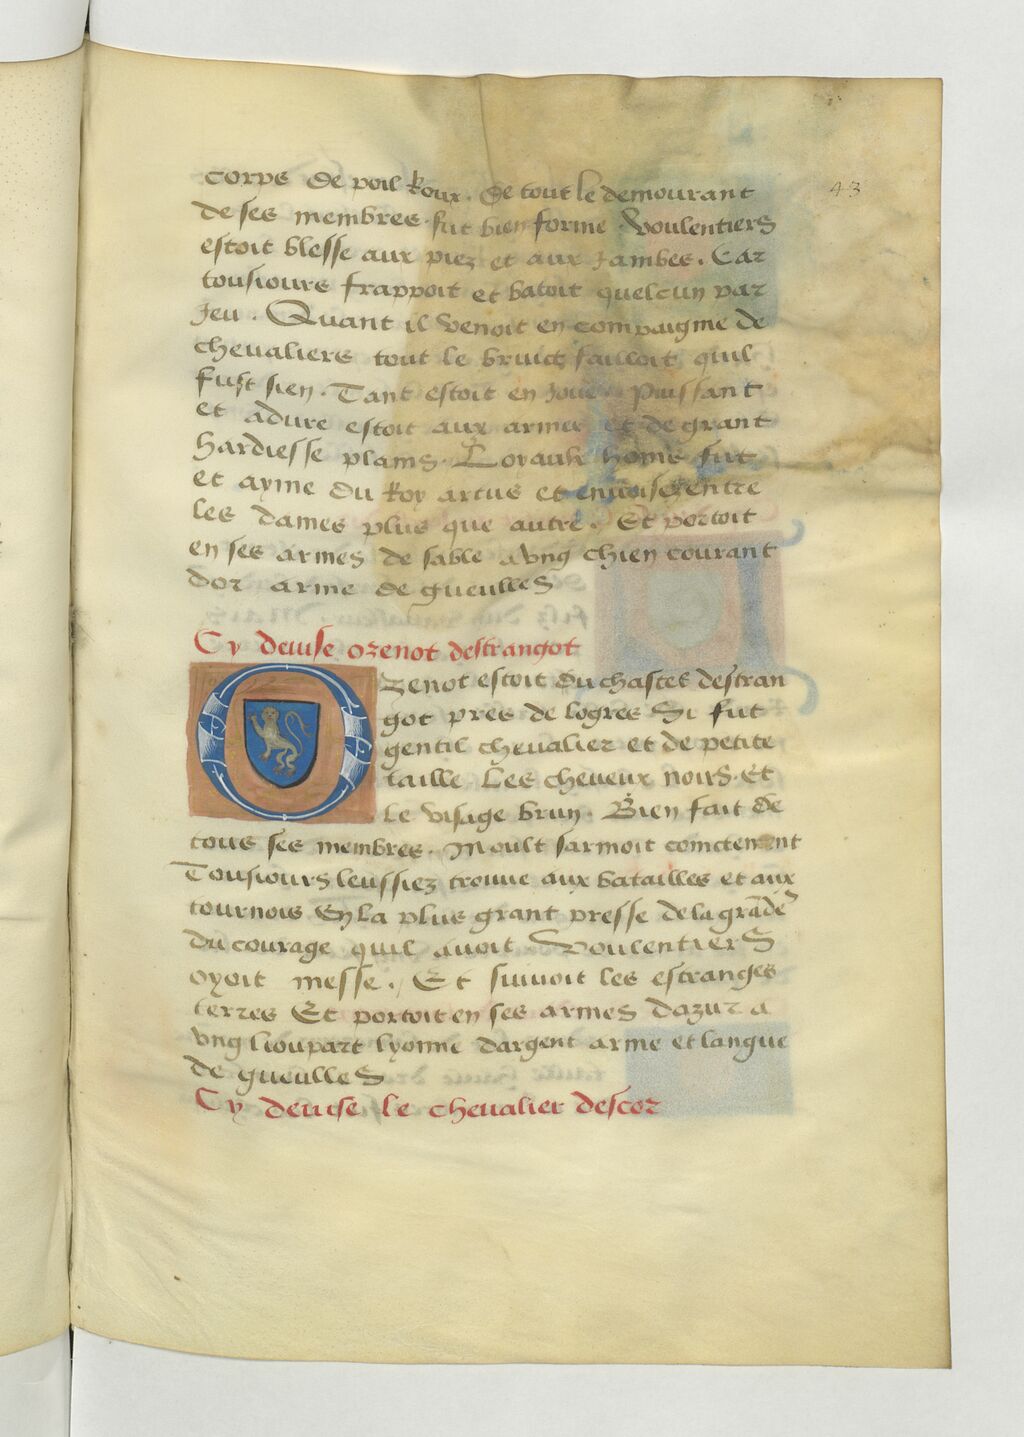 43
corps de poil Roux. De tout le demourant
de ses membres fut bien forme. Voulentiers
estoit blesse aux piez et aux Jambes. Car
tousiours frappoit et batoit quelcun par
Jeu. Quant il venoit en compaignie de
chevaliers tout le bruict failloit quil
fust sien. Tant estoit en Joue Puissant
et adure estoit aux armes et de grant
hardiesse plains. Loyaulx home fut
et ayme du Roy artus et enuoisez entre
les dames plus que autre. Et portoit
en ses armes de sable a vng chien courant
dor arme de gueulles
Cy deuise ozenot destrangot
Ozenot estoit du chastel destran
got pres de logres Si fut
gentil chevalier et de petite
taille Les cheveux noirs. Et
le visage brun. Bien fait de
tous ses membres. Moult sarmoit
Tousiours leussiez trouue aux batailles et aux
tournois En la plus grant presse de la grãde
du courage quil auoit Voulentiers
oyoit messe. Et suiuoit les estranges
terres Et portoit en ses armes dazur a
vng lioupart lyonne dargent arme et langue
de gueulles
Cy deuise le chevalier descor